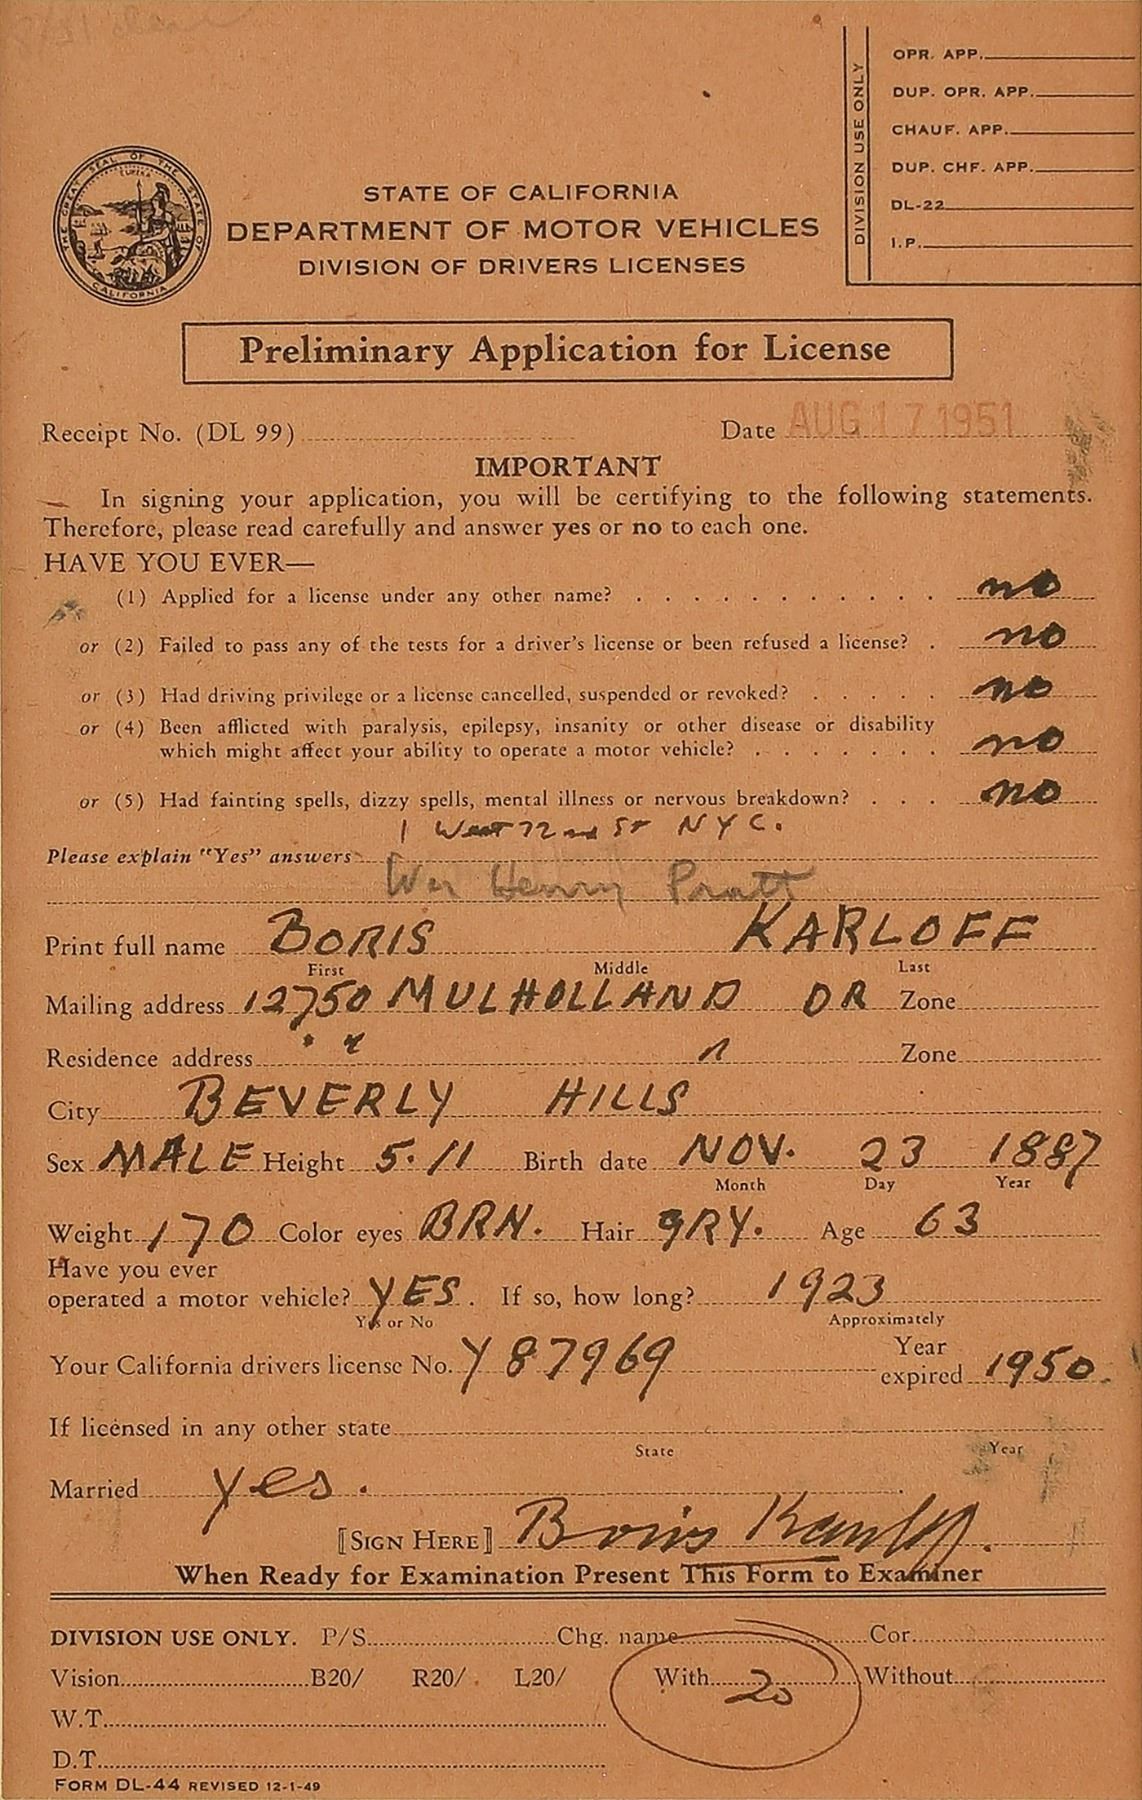 OPR. APP.
DUP. OPR. APP.
CHAUF. APP.
DUP. CHF. APP.
DL-22
I.P.
DIVISION USE ONLY
THE GREAT SEAL OF THE STATE OF CALIFORNIA
EUREKA
STATE OF CALIFORNIA
DEPARTMENT OF MOTOR VEHICLES
DIVISION OF DRIVERS LICENSES
Preliminary Application for License
Receipt No. (DL 99) Date AUG 17 1951
IMPORTANT
In signing your application, you will be certifying to the following statements.
Therefore, please read carefully and answer yes or no to each one.
HAVE YOU EVER—
(1) Applied for a license under any other name? no
or (2) Failed to pass any of the tests for a driver's license or been refused a license? no
or (3) Had driving privilege or a license cancelled, suspended or revoked? no
or (4) Been afflicted with paralysis, epilepsy, insanity or other disease or disability
which might affect your ability to operate a motor vehicle? no
or (5) Had fainting spells, dizzy spells, mental illness or nervous breakdown? no
1 West 72nd St NYC.
Please explain "Yes" answers
Wm Henry Pratt
Print full name BORIS KARLOFF
First Middle Last
Mailing address 12750 MULHOLLAND DR Zone
Residence address " " " Zone
City BEVERLY HILLS
Sex MALE Height 5.11 Birth date NOV. 23 1887
Month Day Year
Weight 170 Color eyes BRN. Hair GRY. Age 63
Have you ever
operated a motor vehicle? YES. If so, how long? 1923
Yes or No Approximately
Your California drivers license No. Y 87969 Year expired 1950.
If licensed in any other state
State Year
Married Yes.
[SIGN HERE] Boris Karloff.
When Ready for Examination Present This Form to Examiner
DIVISION USE ONLY. P/S Chg. name Cor.
Vision B20/ R20/ L20/ With 20 Without
W.T.
D.T.
FORM DL-44 REVISED 12-1-49